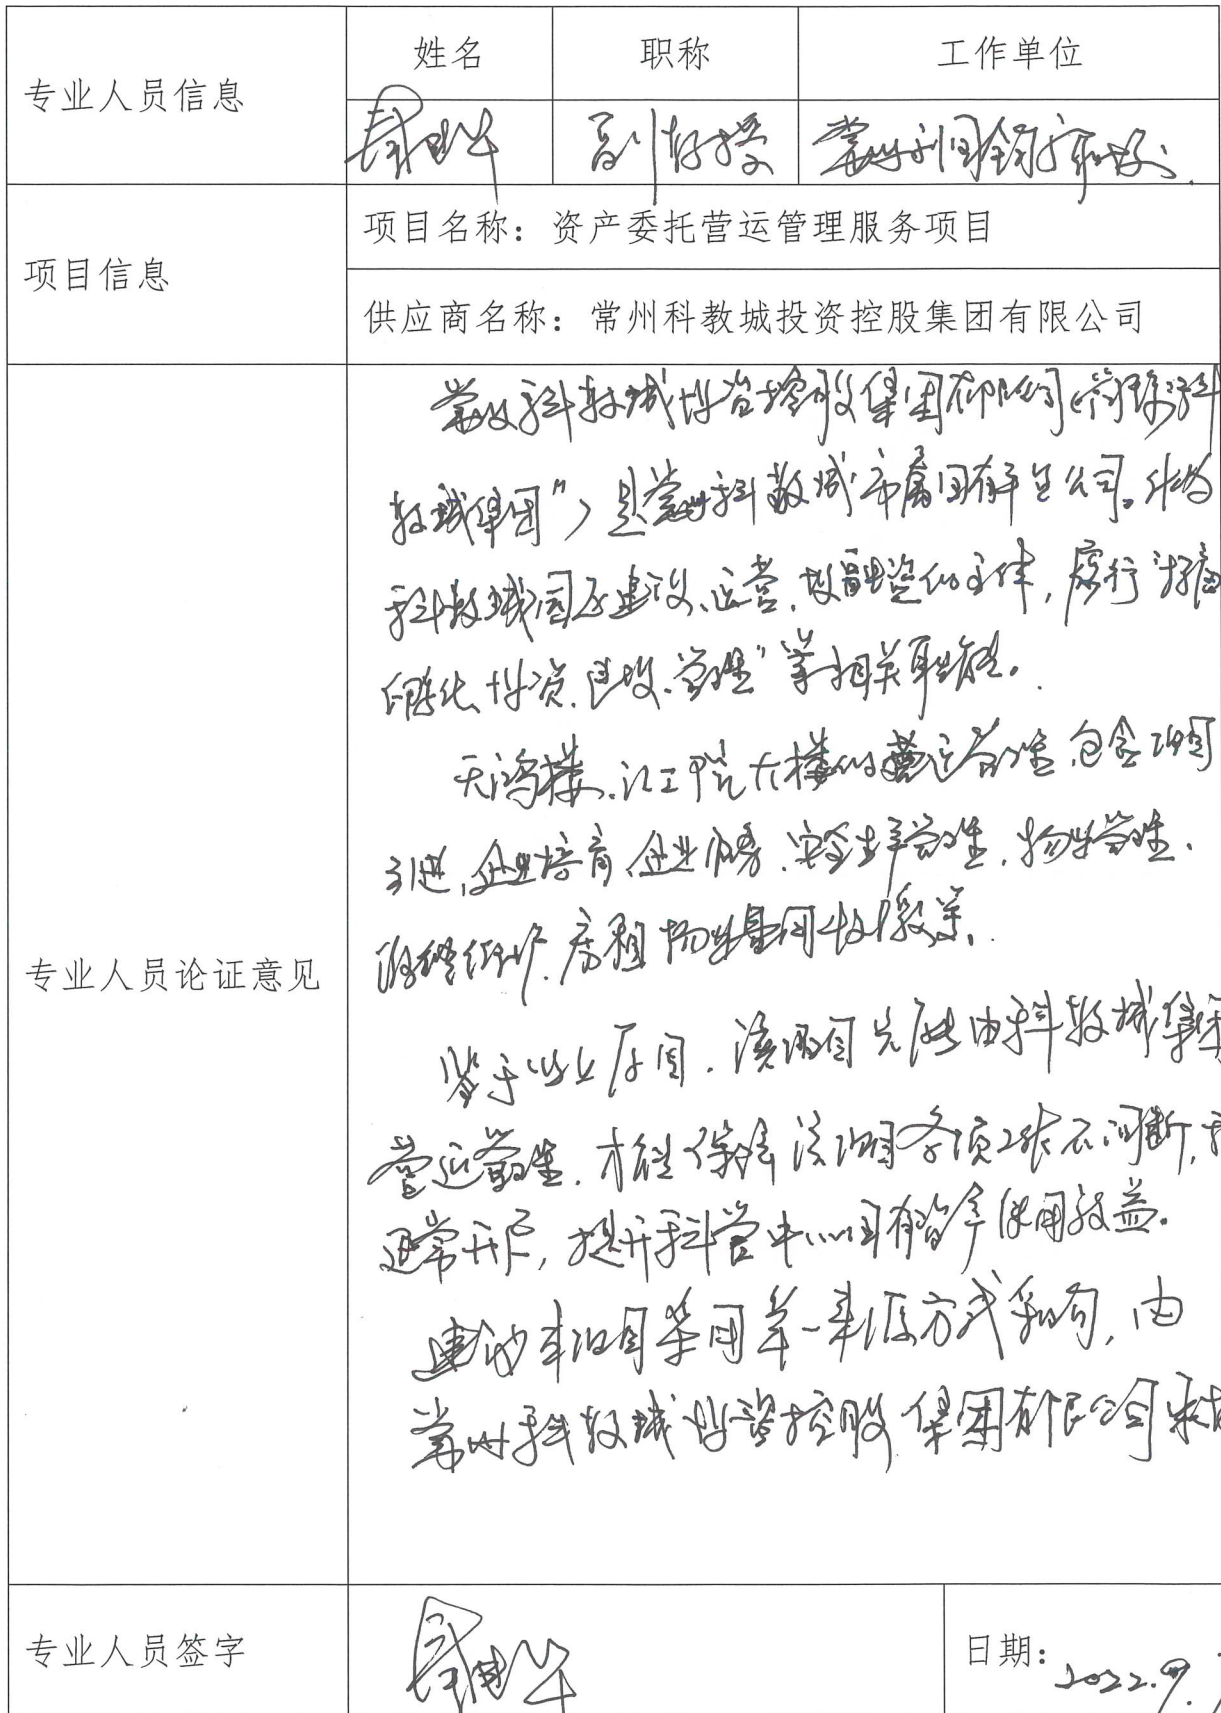 专业人员信息
姓名 职称 工作单位
副教授
项目信息
项目名称：资产委托营运管理服务项目
供应商名称：常州科教城投资控股集团有限公司
专业人员论证意见
常州科教城投资控股集团有限公司（简称“科
教城集团”）是常州科教城市属国有平台公司。作为
科教城园区建设、运营、投融资的主体，履行“招商
孵化、投资、建设、管理”等相关职能。
天鸿楼、江工院大楼的营运管理，包含项目
引进，企业培育、企业服务、安全生产管理，物业管理、
维修维护、房租物业费用收缴等。
鉴于以上原因，该项目只能由科教城集团
营运管理，才能保持该项目各项工作不间断，
正常开展，提升科营中心国有资产使用效益。
建议本项目采用单一来源方式采购，由
常州科教城投资控股集团有限公司承
专业人员签字
日期：2022.9.